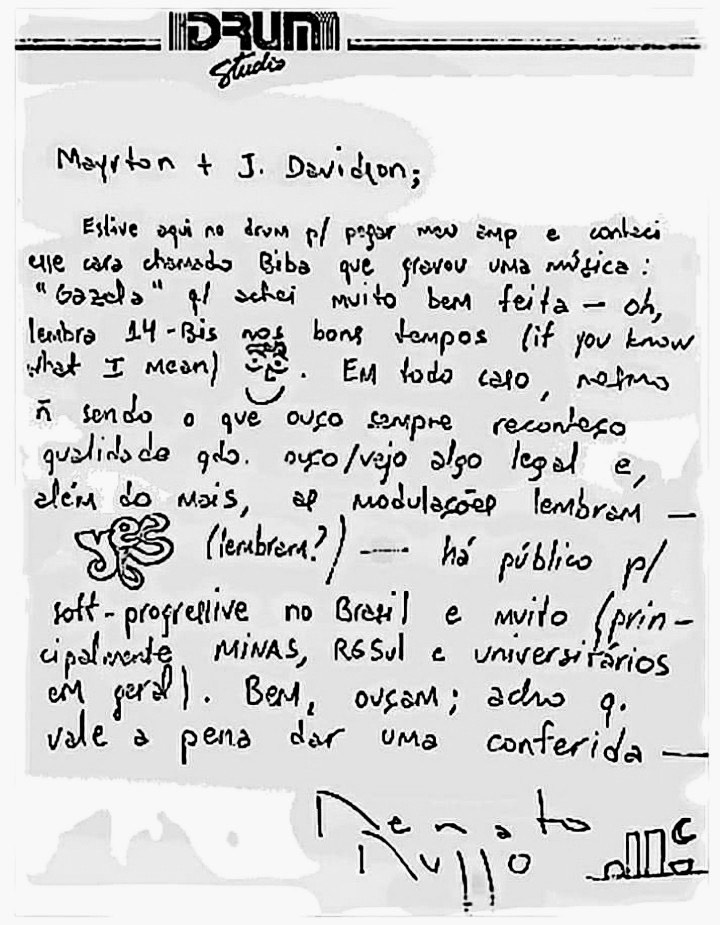 DRUM
Studio
Mayrton + J. Davidson;
Estive aqui no drum p/ pegar meu amp e conheci
esse cara chamado Biba que gravou uma música:
"Gazela" q/ achei muito bem feita — oh,
lembra 14-Bis nos bons tempos (if you know
what I mean) . Em todo caso, mesmo
ñ sendo o que ouço sempre reconheço
qualidade qdo. ouço/vejo algo legal e,
além do mais, as modulações lembram —
yes (lembram?) — há público p/
soft-progressive no Brasil e muito (prin-
cipalmente MINAS, RGSul e universitários
em geral). Bem, ouçam; acho q.
vale a pena dar uma conferida —
Renato
Russo